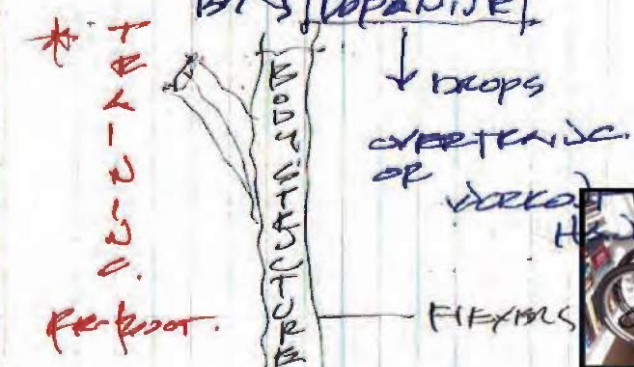 * TRAINING.
RE-BOOT.
BODY STRUCTURE
DOPAMINE
DROPS
OVERTRAINING
OR
WORKOUT
FLEXERS